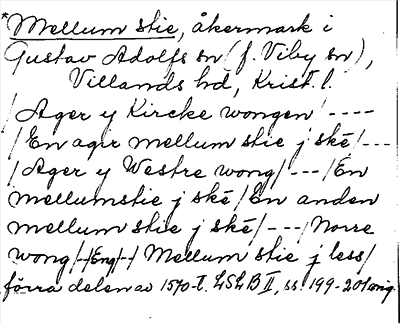 *Mellum stie, åkermark i
Gustav Adolfs sn (f. Viby sn),
Villands hd, Krist. l.
/Ager y Kircke wongen/----
/En ager mellum stie j skē/---
/Ager y Westre wong/---/En
mellumstie j skē/En anden
mellum stie j skē/---/Norre
wong/-/Eng/-/Mellum stie j less/
förra delen av 1570-t. LSLB II, ss. 199-201 orig.